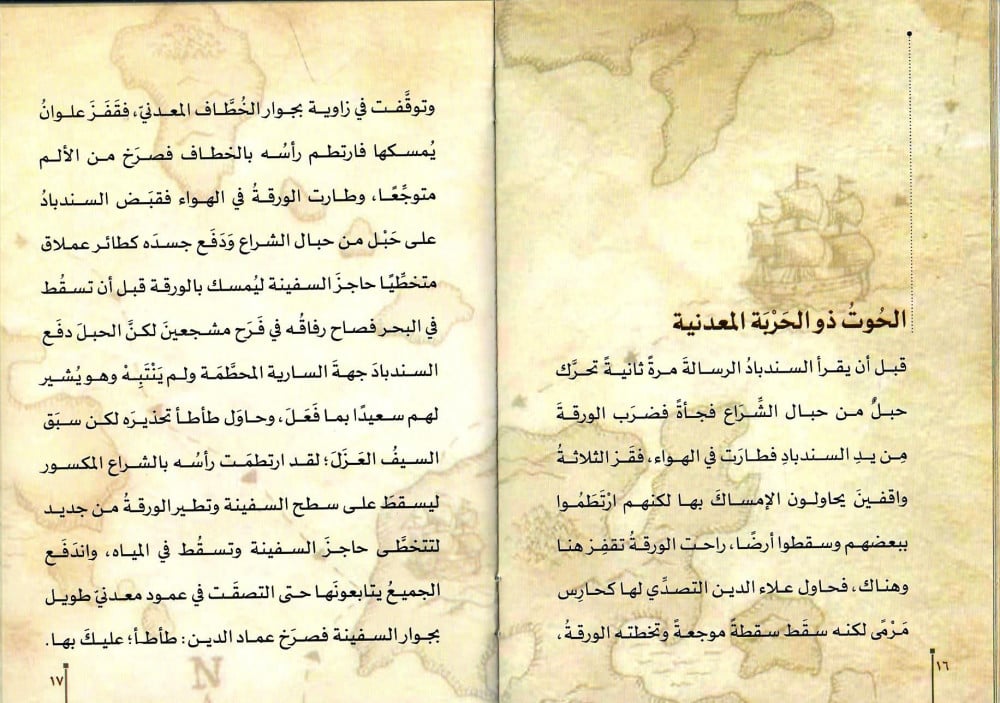 الحُوتُ ذو الحَرْبَة المعدنية
قبل أن يقرأ السندبادُ الرسالةَ مرةً ثانيةً تحرَّك
حبلٌ من حبال الشِّرَاع فجأةً فضرَب الورقةَ
مِن يدِ السندبادِ فطارَت في الهواء، فقَفز الثلاثةُ
واقفينَ يحاولون الإمساكَ بها لكنهم ارْتَطَمُوا
ببعضهم وسقطوا أرضًا، راحت الورقةُ تقفِز هنا
وهناك، فحاول علاء الدين التصدِّي لها كحارِس
مَرْمًى لكنه سقَط سقطةً موجعةً وتخطته الورقةُ،
١٦
وتوقَّفت في زاوية بجوار الخُطَّاف المعدنيّ، فقَفَزَ علوانُ
يُمسكها فارتطم رأسُه بالخطاف فصرَخ من الألم
متوجِّعًا، وطارت الورقةُ في الهواء فقبَض السندبادُ
على حَبْل من حبال الشراع وَدَفَع جسدَه كطائر عملاق
متخطِّيًا حاجزَ السفينة ليُمسك بالورقة قبل أن تسقُط
في البحر فصاح رفاقُه في فَرَح مشجعينَ لكنَّ الحبلَ دفَع
السندبادَ جهةَ السارية المحطَّمَة ولم يَنْتَبِهْ وهو يُشير
لهم سعيدًا بما فَعَلَ، وحاوَل طأطأ تحذيرَه لكن سبَق
السيفُ العَزَلَ؛ لقد ارتطمَت رأسُه بالشراع المكسور
ليسقطَ على سطح السفينة وتطير الورقةُ من جديد
لتتخطَّى حاجزَ السفينة وتسقُط في المياه، واندَفَع
الجميعُ يتابعونَها حتى التصقَت في عمود معدنيّ طويل
بجوار السفينة فصرَخ عماد الدين: طأطأ؛ عليكَ بها.
N
١٧